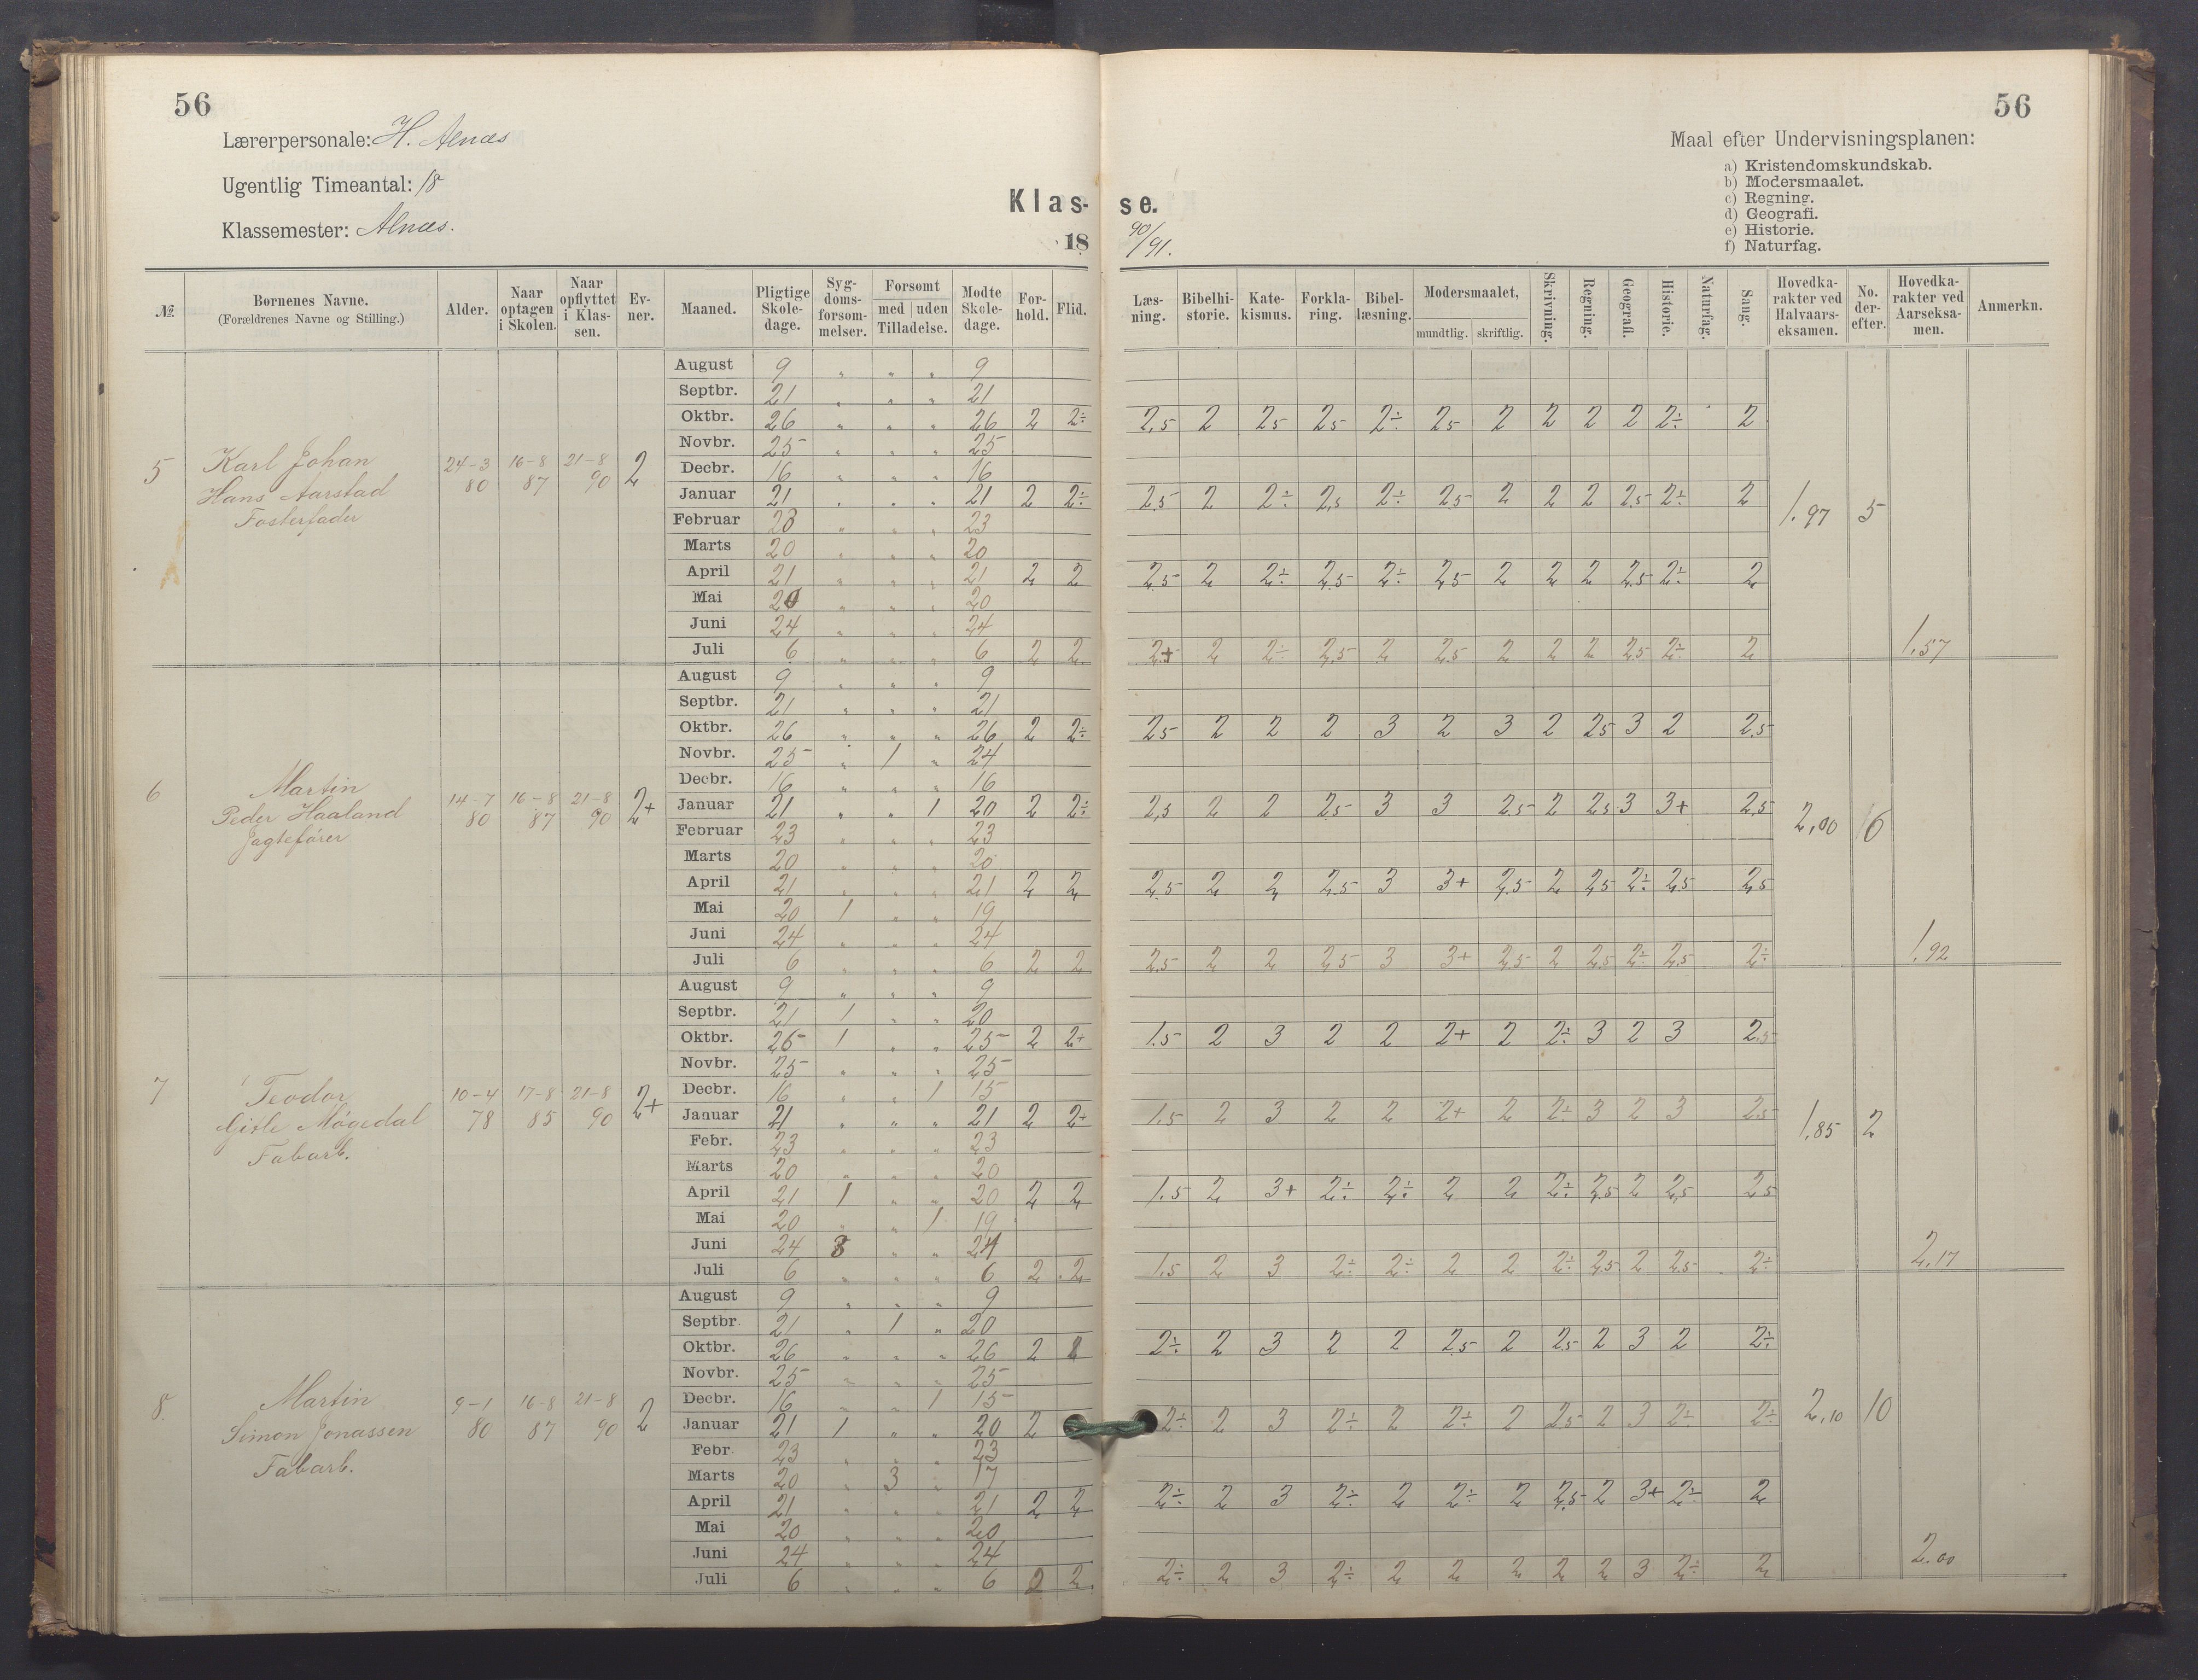 56
56
Lærerpersonale: H. Alnæs
Ugentlig Timeantal: 18
Klassemester: Alnæs.
Klas- se.
18 90/91.
Maal efter Undervisningsplanen:
a) Kristendomskundskab.
b) Modersmaalet.
c) Regning.
d) Geografi.
e) Historie.
f) Naturfag.
№ | Børnenes Navne. (Forældrenes Navne og Stilling.) | Alder. | Naar optagen i Skolen. | Naar opflyttet i Klassen. | Evner. | Maaned. | Pligtige Skoledage. | Sygdomsforsømmelser. | Forsømt med uden Tilladelse. | Mødte Skoledage. | Forhold. | Flid. | Læsning. | Bibelhistorie. | Katekismus. | Forklaring. | Bibellæsning. | Modersmaalet, mundtlig. skriftlig. | Skrivning. | Regning. | Geografi. | Historie. | Naturfag. | Sang. | Hovedkarakter ved Halvaarseksamen. | No. derefter. | Hovedkarakter ved Aarseksamen. | Anmerkn.
5 Karl Johan 24-3 80 16-8 87 21-8 90 2
Hans Aarstad
Fosterfader
August 9 " " " 9
Septbr. 21 " " " 21
Oktbr. 26 " " " 26 2 2÷ 2,5 2 2,5 2,5 2÷ 2,5 2 2 2 2 2÷ 2
Novbr. 25 " " " 25
Decbr. 16 " " " 16
Januar 21 " " " 21 2 2÷ 2,5 2 2÷ 2,5 2÷ 2,5 2 2 2 2,5 2÷ 2 1.97 5
Februar 23 " " " 23
Marts 20 " " " 20
April 21 " " " 21 2 2 2,5 2 2÷ 2,5 2÷ 2,5 2 2 2 2,5 2÷ 2
Mai 20 " " " 20
Juni 24 " " " 24
Juli 6 " " " 6 2 2 2 2÷ 2,5 2 2,5 2 2 2 2,5 2÷ 2 1.57
6 Martin 14-7 80 16-8 87 21-8 90 2+
Peder Haaland
Jagtefører
August 9 " " " 9
Septbr. 21 " " " 21
Oktbr. 26 " " " 26 2 2÷ 2,5 2 2 2 3 2 3 2 2,5 3 2 2,5
Novbr. 25 " 1 " 24
Decbr. 16 " " " 16
Januar 21 " " 1 20 2 2÷ 2,5 2 2 2,5 3 3 2,5 2 2,5 3 3+ 2,5 2,00 6
Februar 23 " " " 23
Marts 20 " " " 20
April 21 " " " 21 2 2 2,5 2 2 2,5 3 3+ 2,5 2 2,5 2÷ 2,5 2,5
Mai 20 1 " " 19
Juni 24 " " " 24
Juli 6 " " " 6 2 2 2,5 2 2 2,5 3 3+ 2,5 2 2,5 2÷ 2,5 2÷ 1.92
7 Teodor 10-4 78 17-8 85 21-8 90 2+
Gitle Møgedal
Fabarb.
August 9 " " " 9
Septbr. 21 1 " " 20
Oktbr. 26 1 " " 25 2 2+ 1.5 2 3 2 2 2+ 2 2÷ 3 2 3 2,5
Novbr. 25 " " " 25
Decbr. 16 " " 1 15
Januar 21 " " " 21 2 2+ 1.5 2 3 2 2 2+ 2 2÷ 3 2 3 2,5 1,85 2
Febr. 23 " " " 23
Marts 20 " " " 20
April 21 1 " " 20 2 2 1.5 2 3+ 2÷ 2÷ 2 2 2÷ 2,5 2 2,5 2,5
Mai 20 " " 1 19
Juni 24 3 " " 21
Juli 6 " " " 6 2 2 1.5 2 3 2÷ 2÷ 2 2 2÷ 2,5 2 2,5 2÷ 2,17
8 Martin 9-1 80 16-8 87 21-8 90 2
Simon Jonassen
Fabarb.
August 9 " " " 9
Septbr. 21 " 1 " 20
Oktbr. 26 " " " 26 2 2 2÷ 2 3 2 2 2,5 2 2,5 2 3 2 2÷
Novbr. 25 " " " 25
Decbr. 16 " " 1 15
Januar 21 1 " " 20 2 2÷ 2 3 2÷ 2 2÷ 2 2,5 2 3 2÷ 2÷ 2,10 10
Febr. 23 " " " 23
Marts 20 " 3 " 17
April 21 " " " 21 2 2 2÷ 2 3 2÷ 2 2÷ 2 2,5 2 3+ 2÷ 2
Mai 20 " " " 20
Juni 24 " " " 24
Juli 6 " " " 6 2 2 2÷ 2 3 2÷ 2 2 2 2 2 3 2÷ 2 2.00